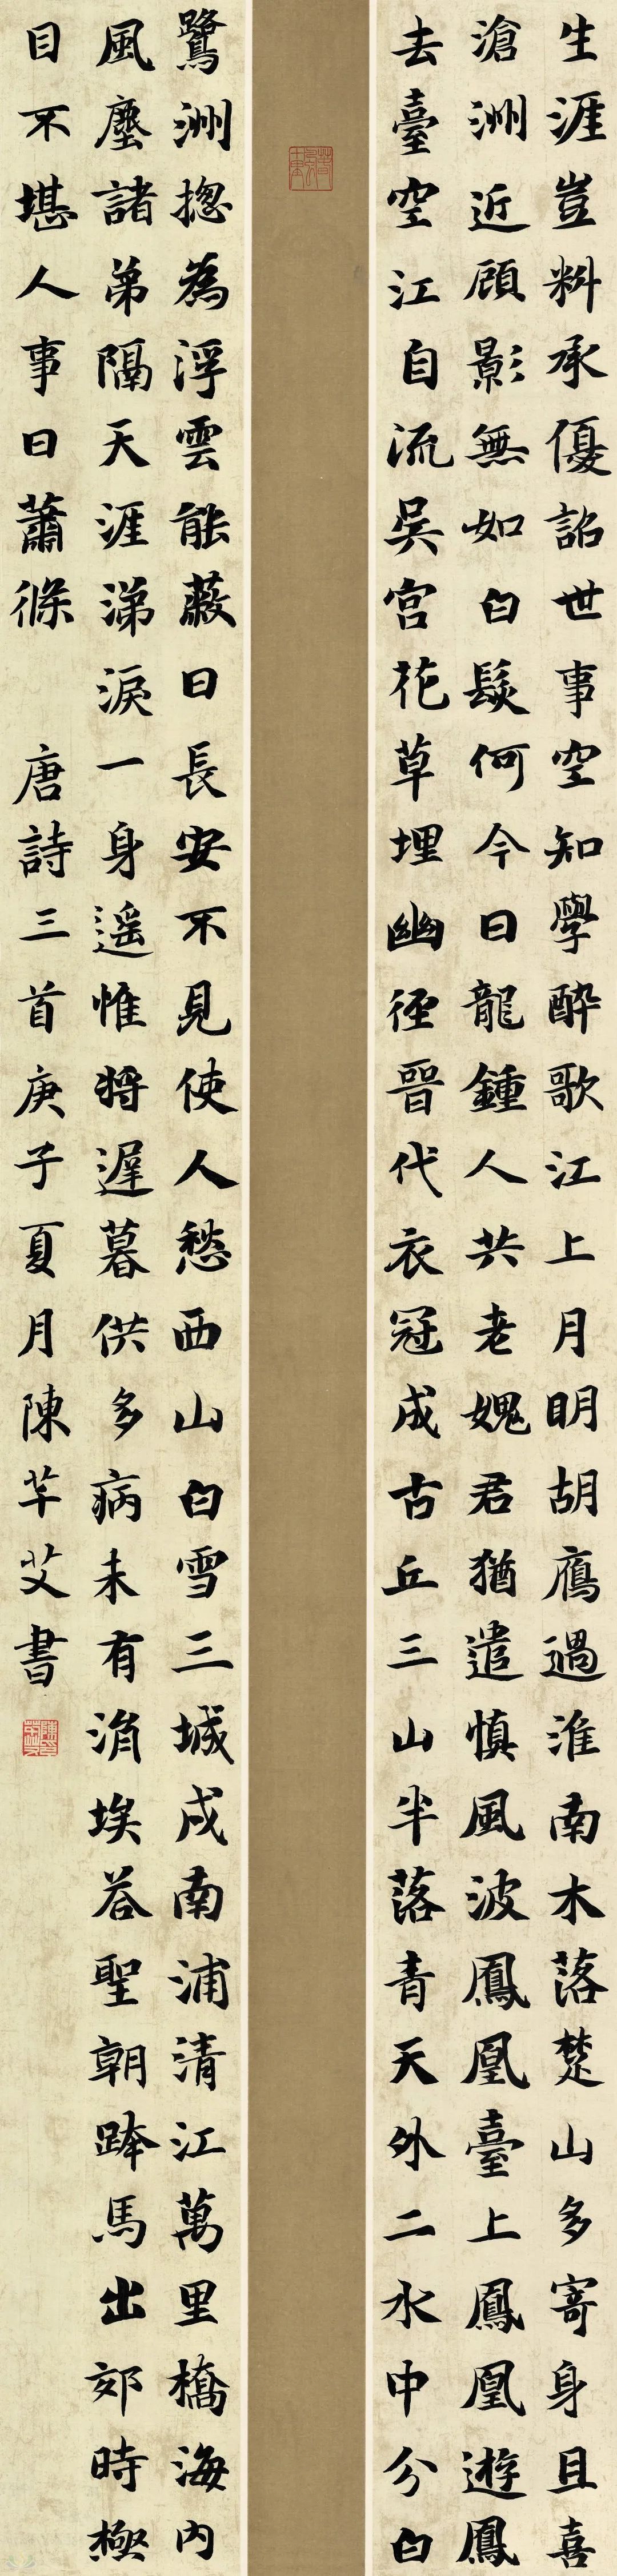 生涯豈料承優詔世事空知學醉歌江上月明胡鴈過淮南木落楚山多寄身且喜
滄洲近顧影無如白髮何今日龍鍾人共老媿君猶遣慎風波鳳凰臺上鳳凰遊鳳
去臺空江自流吳宮花草埋幽徑晉代衣冠成古丘三山半落青天外二水中分白
鷺洲揔為浮雲能蔽日長安不見使人愁西山白雪三城戍南浦清江萬里橋海內
風塵諸弟隔天涯涕淚一身遥惟將遲暮供多病未有涓埃答聖朝跨馬出郊時極
目不堪人事日蕭條 唐詩三首庚子夏月陳芊艾書